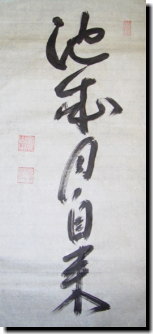 池成月自来